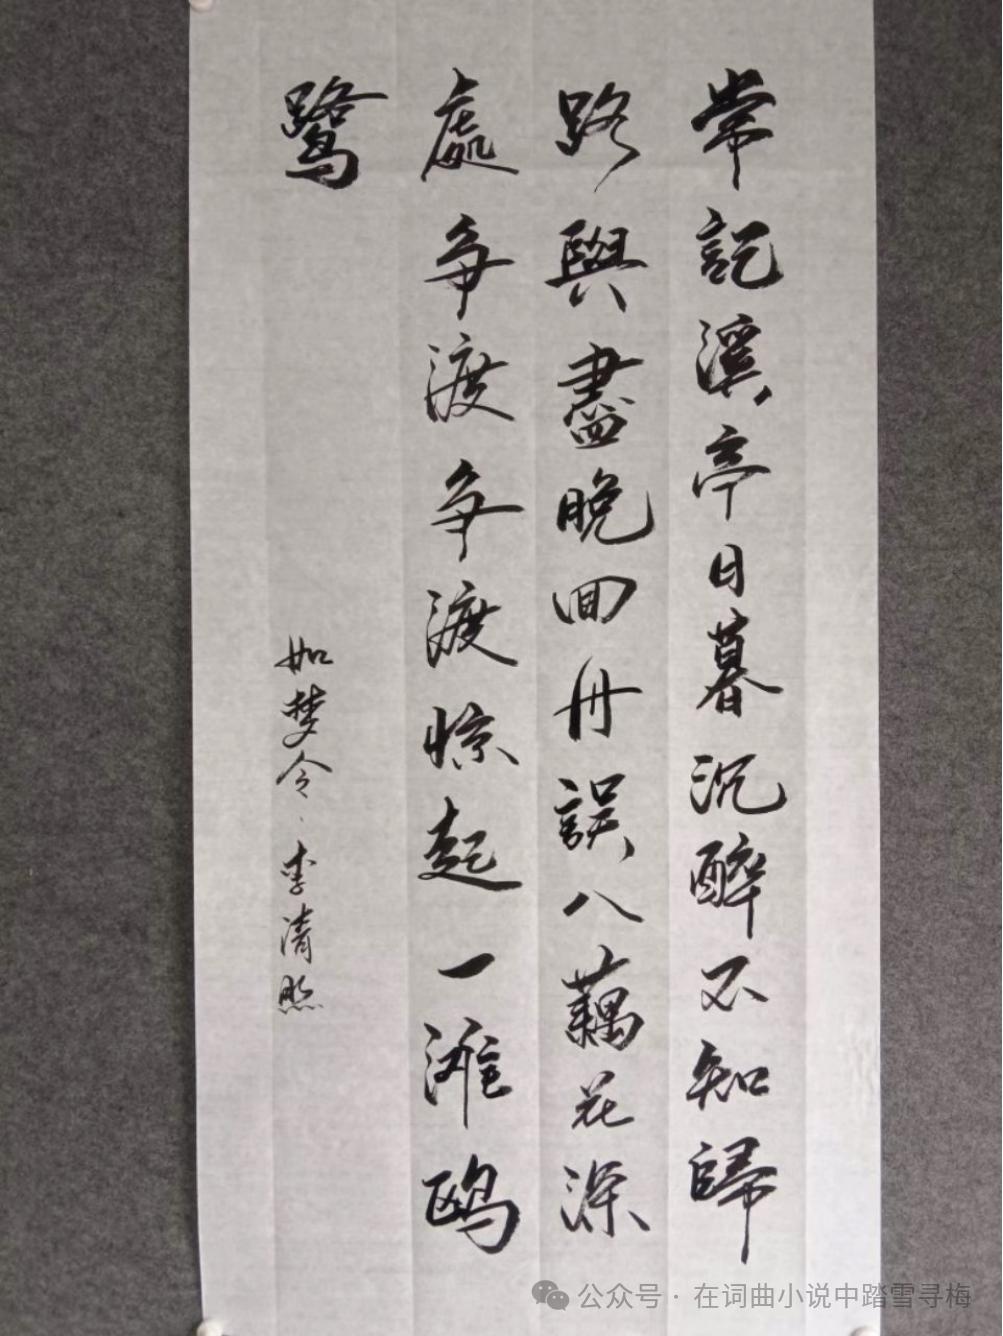 常記溪亭日暮沉醉不知歸
路興盡晚回舟誤入藕花深
處争渡争渡惊起一滩鸥
鹭
如梦令·李清照
公众号·在词曲小说中踏雪寻梅